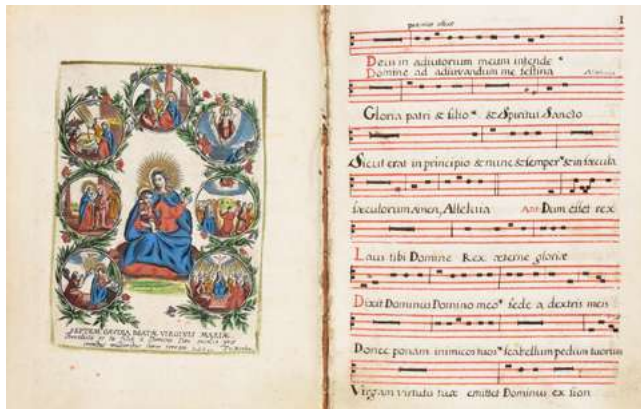 SEPTEM GAVDIA BEATÆ VIRGINIS MARIÆ
1
Deus in adiutorium meum intende *
Domine ad adiuvandum me festina
Gloria patri & filio * & Spiritui Sancto
Sicut erat in principio & nunc & semper * & in sæcula
sæculorum amen, Alleluia Ant Dum esset rex
Laus tibi Domine Rex æterne gloriæ
Dixit Dominus Domino meo * sede a dextris meis
Donec ponam inimicos tuos * scabellum pedum tuorum
Virgam virtutis tuæ emittet Dominus ex sion